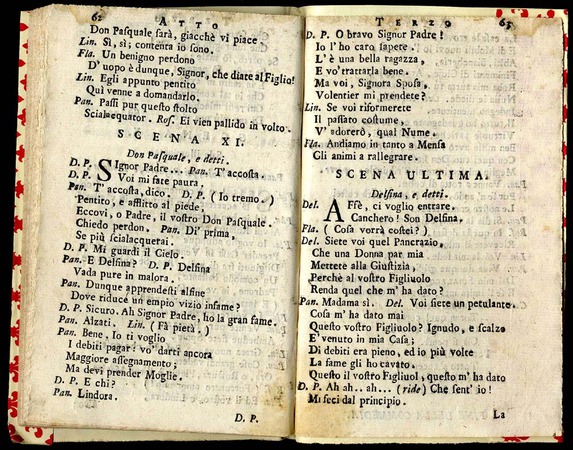 62 ATTO
Don Pasquale sarà, giacchè vi piace.
Lin. Sì, sì; contenta io sono.
Fla. Un benigno perdono
D'uopo è dunque, Signor, che diate al Figlio!
Lin. Egli appunto pentito
Quì venne a domandarlo.
Pan. Passi pur questo stolto
Scialacquator. Ros. Ei vien pallido in volto.
SCENA XI.
Don Pasquale, e detti.
D. P. SIgnor Padre... Pan. T'accosta.
D. P. Voi mi fate paura.
Pan. T'accosta, dico. D. P. (Io tremo.)
Pentito, e afflitto al piede,
Eccovi, o Padre, il vostro Don Pasquale.
Chiedo perdon. Pan. Di' prima,
Se più scialacquerai.
D. P. Mi guardi il Cielo.
Pan. E Delfina? D. P. Delfina
Vada pure in malora.
Pan. Dunque apprendesti alfine
Dove riduce un empio vizio infame?
D. P. Sicuro. Ah Signor Padre, ho la gran fame.
Pan. Alzati. Lin. (Fà pietà.)
Pan. Bene. Io ti voglio
I debiti pagar: vo' darti ancora
Maggiore assegnamento;
Ma devi prender Moglie.
D. P. E chi?
Pan. Lindora.
D. P.
TERZO 63
D. P. O bravo Signor Padre!
Io l'ho caro sapete.
L'è una bella ragazza,
E vo' trattarla bene.
Ma voi, Signora Sposa,
Volentier mi prendete?
Lin. Se voi riformerete
Il passato costume,
V'adorerò, qual Nume.
Fla. Andiamo in tanto a Mensa
Gli animi a rallegrare.
SCENA ULTIMA.
Delfina, e detti.
Del. AFfè, ci voglio entrare.
Canchero! Son Delfina.
Fla. (Cosa vorrà costei?)
Del. Siete voi quel Pancrazio,
Che una Donna par mia
Mettete alla Giustizia,
Perchè al vostro Figliuolo
Renda quel che m'ha dato?
Pan. Madama sì. Del. Voi siete un petulante.
Cosa m'ha dato mai
Questo vostro Figliuolo? Ignudo, e scalzo
E' venuto in mia Casa;
Di debiti era pieno, ed io più volte
La fame gli ho cavato.
Questo il vostro Figliuol, questo m'ha dato
D. P. Ah ah.. ah... (ride) Che sent' io!
Mi seci dal principio.
La